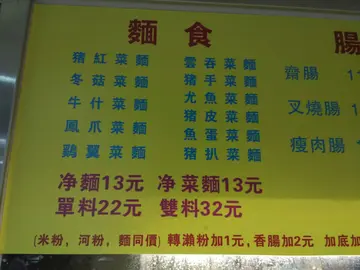 麵食
猪紅菜麵
冬菇菜麵
牛什菜麵
鳳爪菜麵
鷄翼菜麵
雲吞菜麵
猪手菜麵
尤魚菜麵
猪皮菜麵
魚蛋菜麵
猪扒菜麵
净麵13元 净菜麵13元
單料22元 雙料32元
(米粉，河粉，麵同價) 轉瀨粉加1元，香腸加2元 加底加
腸
齋腸 1
叉燒腸
瘦肉腸